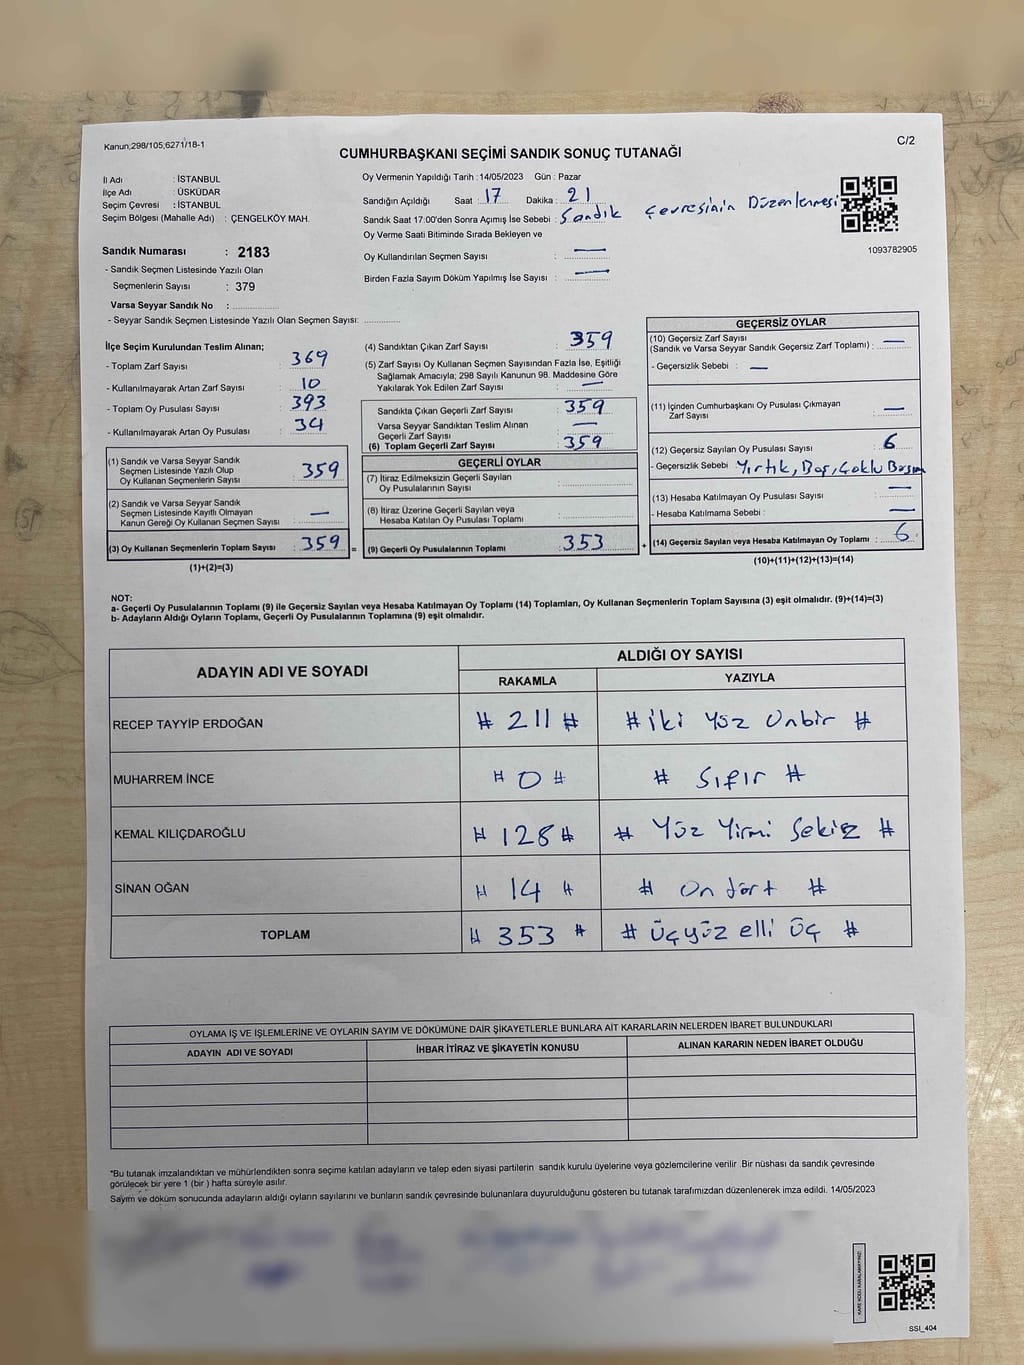 Kanun,298/105;6271/18-1
C/2
CUMHURBAŞKANI SEÇİMİ SANDIK SONUÇ TUTANAĞI
İl Adı : İSTANBUL
İlçe Adı : ÜSKÜDAR
Seçim Çevresi : İSTANBUL
Seçim Bölgesi (Mahalle Adı) : ÇENGELKÖY MAH.
Sandık Numarası : 2183
- Sandık Seçmen Listesinde Yazılı Olan
Seçmenlerin Sayısı : 379
Varsa Seyyar Sandık No :
- Seyyar Sandık Seçmen Listesinde Yazılı Olan Seçmen Sayısı:
Oy Vermenin Yapıldığı Tarih :14/05/2023 Gün : Pazar
Sandığın Açıldığı Saat : 17 Dakika : 21
Sandık Saat 17:00'den Sonra Açımış İse Sebebi : Sandık Çevresinin Düzenlenmesi
Oy Verme Saati Bitiminde Sırada Bekleyen ve
Oy Kullandırılan Seçmen Sayısı : —
Birden Fazla Sayım Döküm Yapılmış İse Sayısı : —
1093782905
İlçe Seçim Kurulundan Teslim Alınan;
- Toplam Zarf Sayısı : 369
- Kullanılmayarak Artan Zarf Sayısı : 10
- Toplam Oy Pusulası Sayısı : 393
- Kullanılmayarak Artan Oy Pusulası : 34
(1) Sandık ve Varsa Seyyar Sandık
Seçmen Listesinde Yazılı Olup
Oy Kullanan Seçmenlerin Sayısı : 359
(2) Sandık ve Varsa Seyyar Sandık
Seçmen Listesinde Kayıtlı Olmayan
Kanun Gereği Oy Kullanan Seçmen Sayısı : —
(3) Oy Kullanan Seçmenlerin Toplam Sayısı : 359 =
(1)+(2)=(3)
(4) Sandıktan Çıkan Zarf Sayısı : 359
(5) Zarf Sayısı Oy Kullanan Seçmen Sayısından Fazla İse, Eşitliği
Sağlamak Amacıyla; 298 Sayılı Kanunun 98. Maddesine Göre
Yakılarak Yok Edilen Zarf Sayısı : —
Sandıkta Çıkan Geçerli Zarf Sayısı : 359
Varsa Seyyar Sandıktan Teslim Alınan
Geçerli Zarf Sayısı : —
(6) Toplam Geçerli Zarf Sayısı : 359
GEÇERLİ OYLAR
(7) İtiraz Edilmeksizin Geçerli Sayılan
Oy Pusulalarının Sayısı :
(8) İtiraz Üzerine Geçerli Sayılan veya
Hesaba Katılan Oy Pusulası Toplamı :
(9) Geçerli Oy Pusulalarının Toplamı : 353 +
GEÇERSİZ OYLAR
(10) Geçersiz Zarf Sayısı
(Sandık ve Varsa Seyyar Sandık Geçersiz Zarf Toplamı) : —
- Geçersizlik Sebebi : —
(11) İçinden Cumhurbaşkanı Oy Pusulası Çıkmayan
Zarf Sayısı : —
(12) Geçersiz Sayılan Oy Pusulası Sayısı : 6
- Geçersizlik Sebebi Yırtık, Boş, Çoklu Basım
(13) Hesaba Katılmayan Oy Pusulası Sayısı : —
- Hesaba Katılmama Sebebi : —
(14) Geçersiz Sayılan veya Hesaba Katılmayan Oy Toplamı : 6
(10)+(11)+(12)+(13)=(14)
NOT:
a- Geçerli Oy Pusulalarının Toplamı (9) ile Geçersiz Sayılan veya Hesaba Katılmayan Oy Toplamı (14) Toplamları, Oy Kullanan Seçmenlerin Toplam Sayısına (3) eşit olmalıdır. (9)+(14)=(3)
b- Adayların Aldığı Oyların Toplamı, Geçerli Oy Pusulalarının Toplamına (9) eşit olmalıdır.
ADAYIN ADI VE SOYADI
ALDIĞI OY SAYISI
RAKAMLA YAZIYLA
RECEP TAYYİP ERDOĞAN # 211 # # iki yüz onbir #
MUHARREM İNCE # 0 # # Sıfır #
KEMAL KILIÇDAROĞLU # 128 # # Yüz Yirmi Sekiz #
SİNAN OĞAN # 14 # # on dört #
TOPLAM # 353 # # Üçyüz elli üç #
OYLAMA İŞ VE İŞLEMLERİNE VE OYLARIN SAYIM VE DÖKÜMÜNE DAİR ŞİKAYETLERLE BUNLARA AİT KARARLARIN NELERDEN İBARET BULUNDUKLARI
ADAYIN ADI VE SOYADI İHBAR İTİRAZ VE ŞİKAYETİN KONUSU ALINAN KARARIN NEDEN İBARET OLDUĞU
*Bu tutanak imzalandıktan ve mühürlendikten sonra seçime katılan adayların ve talep eden siyasi partilerin sandık kurulu üyelerine veya gözlemcilerine verilir .Bir nüshası da sandık çevresinde
görülecek bir yere 1 (bir ) hafta süreyle asılır.
Sayım ve döküm sonucunda adayların aldığı oyların sayılarını ve bunların sandık çevresinde bulunanlara duyurulduğunu gösteren bu tutanak tarafımızdan düzenlenerek imza edildi. 14/05/2023
KARE KODU KARALAMAYINIZ!
SSİ_404